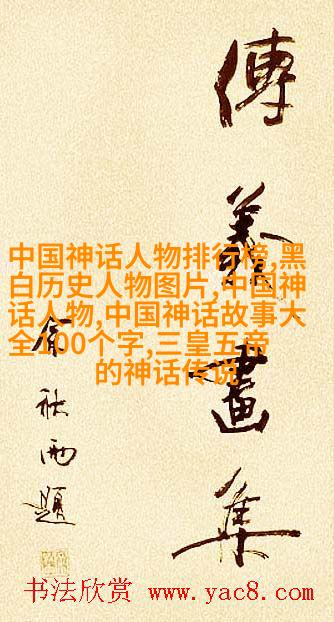 傳
畫
集
中国神话人物排行榜,黑
白历史人物图片,中国神
话人物,中国神话故事大
全100个字,三皇五帝
的神话传说
題
书法欣赏 www.yac8.com